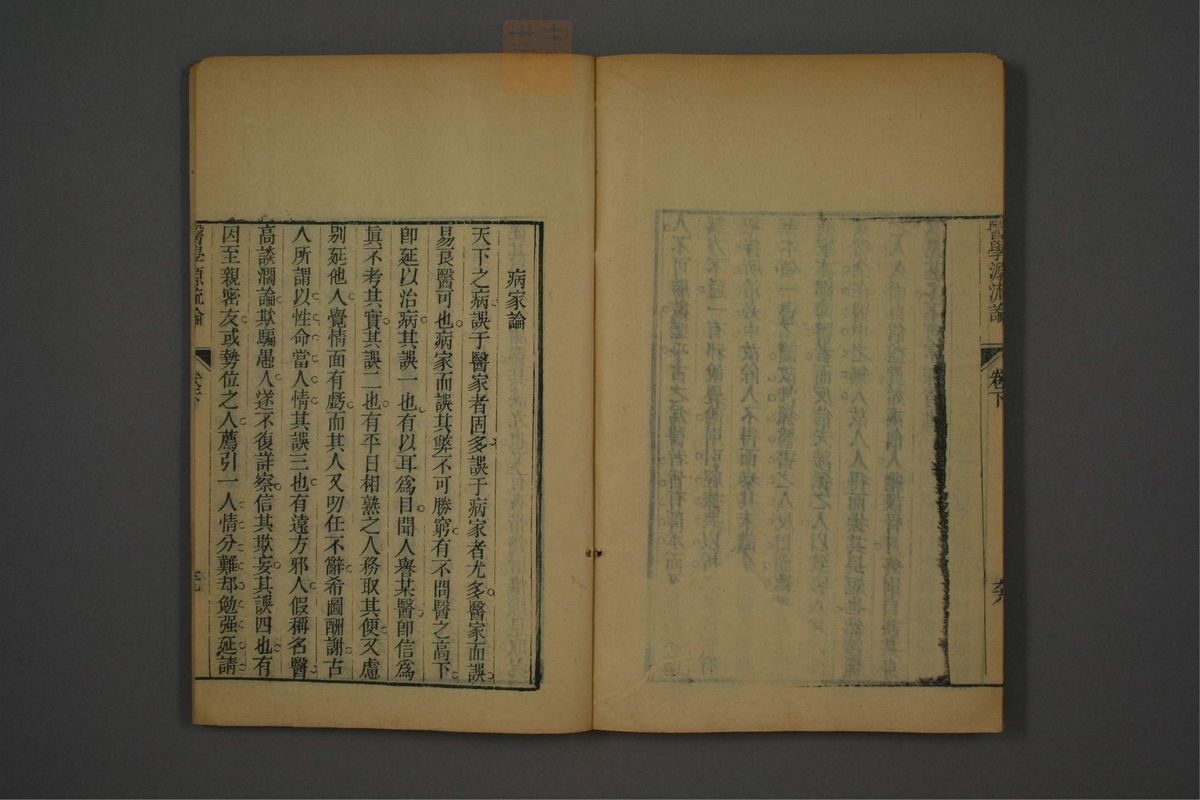 醫學源流論
卷下
病家論
天下之病誤于醫家者固多誤于病家者尤多醫家而誤
易良醫可也病家而誤其弊不可勝窮有不問醫之高下
卽延以治病其誤一也有以耳爲目聞人譽某醫卽信爲
眞不考其實其誤二也有平日相熟之人務取其便又慮
别延他人覺情面有虧而其人又叨任不辭希圖酬謝古
人所謂以性命當人情其誤三也有遠方邪人假稱名醫
高談濶論欺騙愚人遂不復詳察信其欺妄其誤四也有
因至親密友或勢位之人薦引一人情分難却勉强延請
醫學源流論
卷下